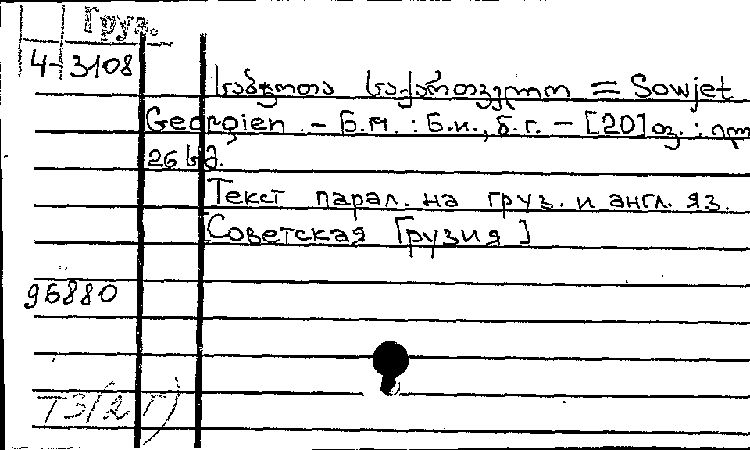 Груз.
4-3108
საბჭოთა საქართველო = Sowjet
Georgien. - Б.м. : Б.и., Б.г. - [20] გვ. : ილ
26 სმ.
Текст парал. на груз. и англ. яз.
Советская Грузия]
96880
Т3(2Г)